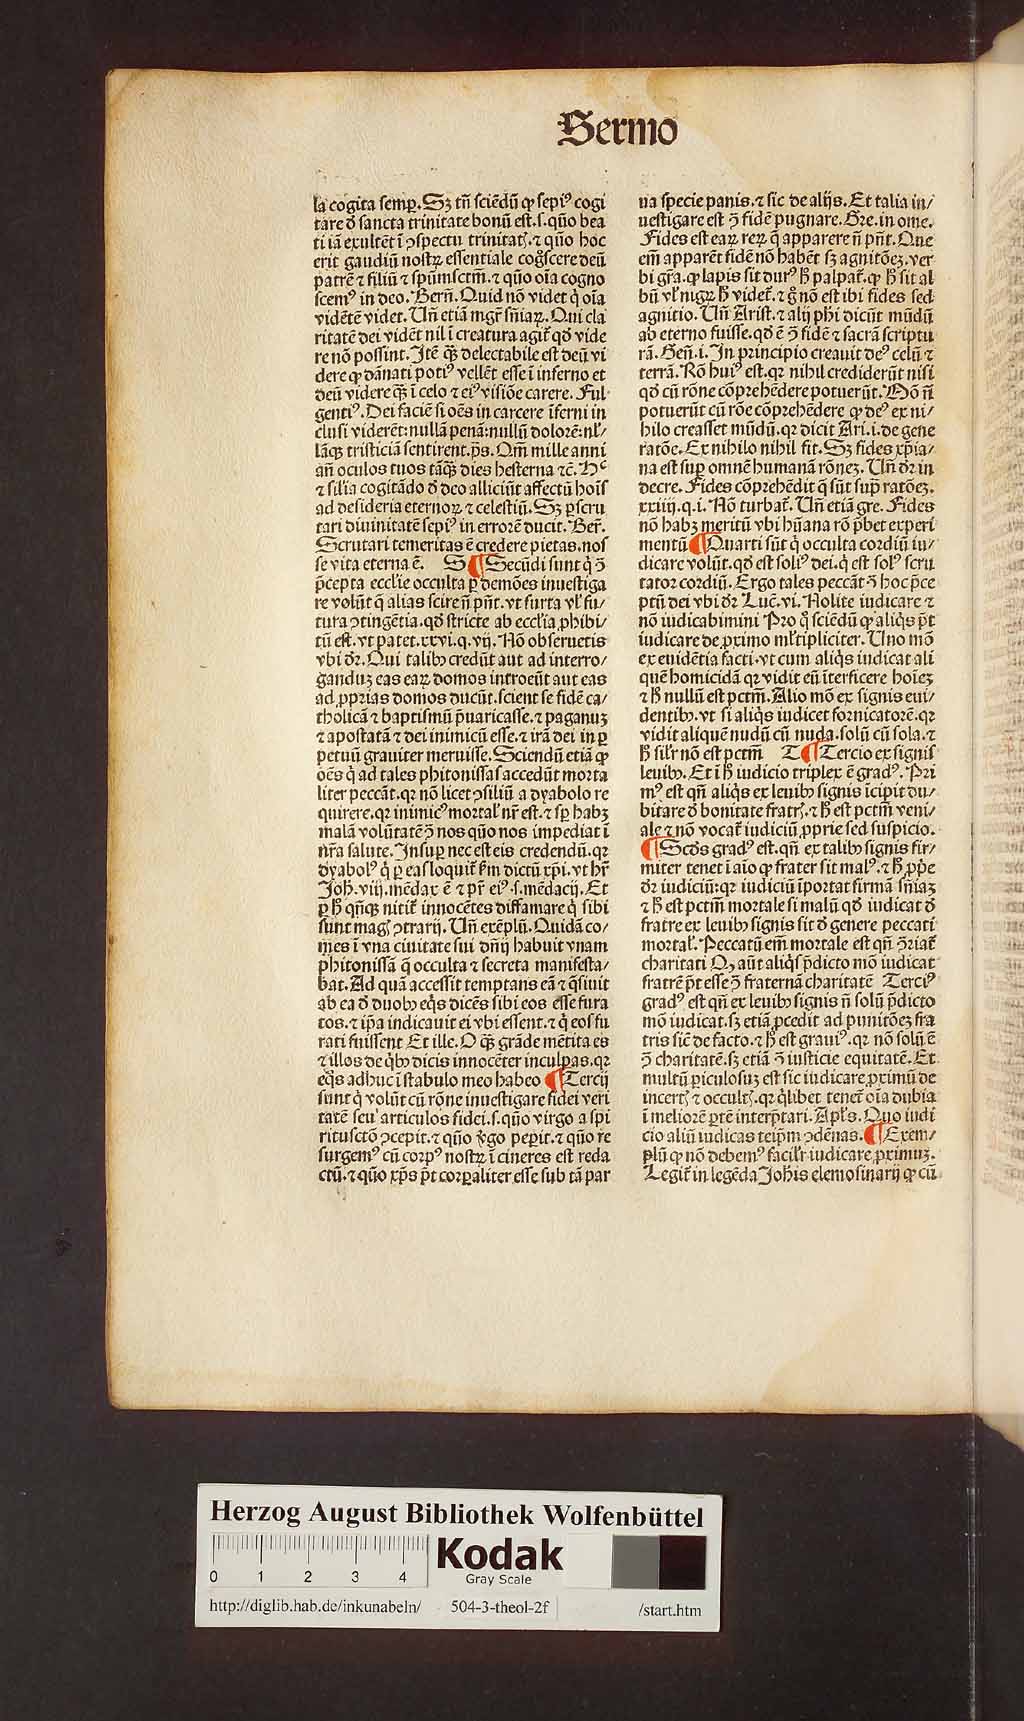 Sermo
la cogita semꝑ. Sꝫ tñ sciẽdũ ꝙ sepiꝰ cogi
tare ð sancta trinitate bonũ est. s. quõ bea
ti iã exultẽt ĩ ɔspectu trinitatꝭ. ⁊ quõ hoc
erit gaudiũ nostrꝝ essentiale cog̃scere deũ
patrẽ ⁊ filiũ ⁊ spũmsctm̃. ⁊ quõ oĩa cogno
scemꝰ in deo. Berñ. Quid nõ videt q̇ oĩa
vidẽtẽ videt. Uñ etiã mgr̃ sñiaꝝ. Qui cla
ritatẽ dei vidẽt nil ĩ creatura agit̃ qð vide
re nõ possint. Itẽ qꝫ̃ delectabile est deũ vi
dere ꝙ dãnati potiꝰ vellẽt esse ĩ inferno et
deũ videre qꝫ̃ ĩ celo ⁊ eiꝰ visiõe carere. Ful
gentiꝰ. Dei faciẽ si oẽs in carcere ĩferni in
clusi viderẽt: nullã penã: nullũ dolorẽ: nł/
lãqꝫ tristiciã sentirent. p̃s. Qm̃ mille anni
añ oculos tuos tãqꝫ dies hesterna ⁊c̃. Hᶜ
⁊ siĩlia cogitãdo ð deo alliciũt affectũ hoĩs
ad desideria eternoꝝ ⁊ celestiũ. Sꝫ ꝑscru
tari diuinitatẽ sepiꝰ in errorẽ ducit. Ber̃.
Scrutari temeritas ẽ credere pietas. nos
se vita eterna ẽ. S ¶ Secũdi sunt q̇ ɔ̃
p̃cepta eccłie occulta ꝑ demões inuestiga
re volũt q̃ alias scire ñ pñt. vt furta vł fu/
tura ɔtingẽtia. qð stricte ab eccłia ꝓhibi/
tũ est. vt patet. xxvi. q. vij. Nõ obseruetis
vbi ðr. Qui talibꝰ credũt aut ad interro/
ganduꝫ eas eaꝝ domos introeũt aut eas
ad ꝓprias domos ducũt. scient se fidẽ ca/
tholicã ⁊ baptismũ p̃uaricasse. ⁊ paganuꝫ
⁊ apostatã ⁊ dei inimicũ esse. ⁊ irã dei in ꝑ
petuũ grauiter meruisse. Sciendũ etiã ꝙ
oẽs q̇ ad tales phitonissas accedũt morta
liter peccãt. qꝛ nõ licet ɔsiliũ a dyabolo re
quirere. qꝛ inimicꝰ mortał nr̃ est. ⁊ sꝑ habꝫ
malã volũtatẽ ɔ̃ nos quõ nos impediat ĩ
nr̃a salute. Insuꝑ nec est eis credendũ. qꝛ
dyabolꝰ q̇ ꝑ eas loquit̃ ẜm dictũ xp̃i. vt hr̃
Joħ. viij. mẽdax ẽ ⁊ pr̃ eiꝰ. s. mẽdacij. Et
ꝑ ħ qñqꝫ nitit̃ innocẽtes diffamare q̇ sibi
sunt magꝭ ɔtrarij. Uñ exẽplũ. Quidã co/
mes ĩ vna ciuitate sui dñij habuit vnam
phitonissã q̃ occulta ⁊ secreta manifesta/
bat. Ad quã accessit temptans eã ⁊ q̃siuit
ab ea ð duobꝰ eq̇s dicẽs sibi eos esse fura
tos. ⁊ ip̃a indicauit ei vbi essent. ⁊ q̇ eos fu
rati fuissent Et ille. O qꝫ̃ grãde mẽtita es
⁊ illos de q̇bꝰ dicis innocẽter inculpas. qꝛ
eq̇s adhuc ĩ stabulo meo habeo ¶ Tercij
sunt q̇ volũt cũ rõne inuestigare fidei veri
tatẽ seu articulos fidei. s. quõ virgo a spi
ritusctõ ɔcepit. ⁊ quõ v̾go peꝑit. ⁊ quõ re
surgemꝰ cũ corpꝰ nostrꝝ ĩ cineres est reda
ctũ. ⁊ quõ xp̃s p̃t corꝑaliter esse sub tã par
ua specie panis. ⁊ sic de alijs. Et talia in/
uestigare est ɔ̃ fidẽ pugnare. Gre. in ome.
Fides est eaꝝ reꝝ q̃ apparere ñ pñt. Que
em̃ apparẽt fidẽ nõ habẽt sꝫ agnitõeꝫ. ver
bi gr̃a. ꝙ lapis sit durꝰ ħ palpat̃. ꝙ ħ sit al
bũ vł nigꝝ ħ videt̃. ⁊ g̊ nõ est ibi fides sed
agnitio. Uñ Arist̃. ⁊ alij phi dicũt mũdũ
ab eterno fuisse. qð ẽ ɔ̃ fidẽ ⁊ sacrã scriptu
rã. Geñ. i. In principio creauit deꝰ celũ ⁊
terrã. Rõ huiꝰ est. qꝛ nihil crediderũt nisi
qð cũ rõne cõprehẽdere potuerũt. Mõ ñ
potuerũt cũ rõe cõprehẽdere ꝙ deꝰ ex ni/
hilo creasset mũdũ. qꝛ dicit Ari. i. de gene
ratõe. Ex nihilo nihil fit. Sꝫ fides xp̃ia/
na est suꝑ omnẽ humanã rõneꝫ. Uñ ðr in
decre. Fides cõprehẽdit q̃ sũt supr̃ ratõeꝫ.
xxiiij. q. i. Nõ turbat̃. Uñ etiã gre. Fides
nõ habꝫ meritũ vbi hũana rõ p̃bet experi
mentũ ¶ Quarti sũt q̇ occulta cordiũ iu/
dicare volũt. qð est soliꝰ dei. q̇ est solꝰ scru
tator cordiũ. Ergo tales peccãt ɔ̃ hoc p̃ce
ptũ dei vbi ðr Luc̃. vi. Nolite iudicare ⁊
nõ iudicabimini Pro q̊ sciẽdũ ꝙ aliq̇s p̃t
iudicare de ꝓximo młtipliciter. Uno mõ
ex euidẽtia facti. vt cum aliq̇s iudicat ali
quẽ homicidã qꝛ vidit eũ ĩterficere hoĩeꝫ
⁊ ħ nullũ est pctm̃. Alio mõ ex signis eui/
dentibꝰ. vt si aliq̇s iudicet fornicatorẽ. qꝛ
vidit aliquẽ nudũ cũ nuda. solũ cũ sola. ⁊
ħ siłr nõ est pctm̃ T ¶ Tercio ex signis
leuibꝰ. Et ĩ ħ iudicio triplex ẽ gradꝰ. Pri
mꝰ est qñ aliq̇s ex leuibꝰ signis ĩcipit du/
bitare ð bonitate fratꝭ. ⁊ ħ est pctm̃ veni/
ale ⁊ nõ vocat̃ iudiciũ ꝓprie sed suspicio.
¶ Scðs gradꝰ est. qñ ex talibꝰ signis fir/
miter tenet ĩ aĩo ꝙ frater sit malꝰ. ⁊ ħ ꝓp̃e
ðr iudiciũ: qꝛ iudiciũ ĩportat firmã sñiaꝫ
⁊ ħ est pctm̃ mortale si malũ qð iudicat ð
fratre ex leuibꝰ signis sit ð genere peccati
mortał. Peccatũ em̃ mortale est qñ ɔ̃riat̃
charitati Qꝫ aũt aliq̇s p̃dicto mõ iudicat
fratrẽ p̃t esse ɔ̃ fraternã charitatẽ Terciꝰ
gradꝰ est qñ ex leuibꝰ signis ñ solũ p̃dicto
mõ iudicat. sꝫ etiã ꝓcedit ad punitõeꝫ fra
tris sic̃ de facto. ⁊ ħ est grauiꝰ. qꝛ nõ solũ ẽ
ɔ̃ charitatẽ. sꝫ etiã ɔ̃ iusticie equitatẽ. Et
multũ ꝑiculosuꝫ est sic iudicare ꝓximũ de
incertꝭ ⁊ occultꝭ. qꝛ q̇libet tenet̃ oĩa dubia
ĩ meliorẽ ꝑtẽ interp̃tari. Apłs. Quo iudi
cio aliũ iudicas teip̃m ɔdẽnas. ¶ Exem/
plũ ꝙ nõ debemꝰ faciłr iudicare ꝓximuꝫ.
Legit̃ in legẽda Joħis elemosinarij ꝙ cũ
Herzog August Bibliothek Wolfenbüttel
0 1 2 3 4
Kodak
Gray Scale
http://diglib.hab.de/inkunabeln/ 504-3-theol-2f /start.htm